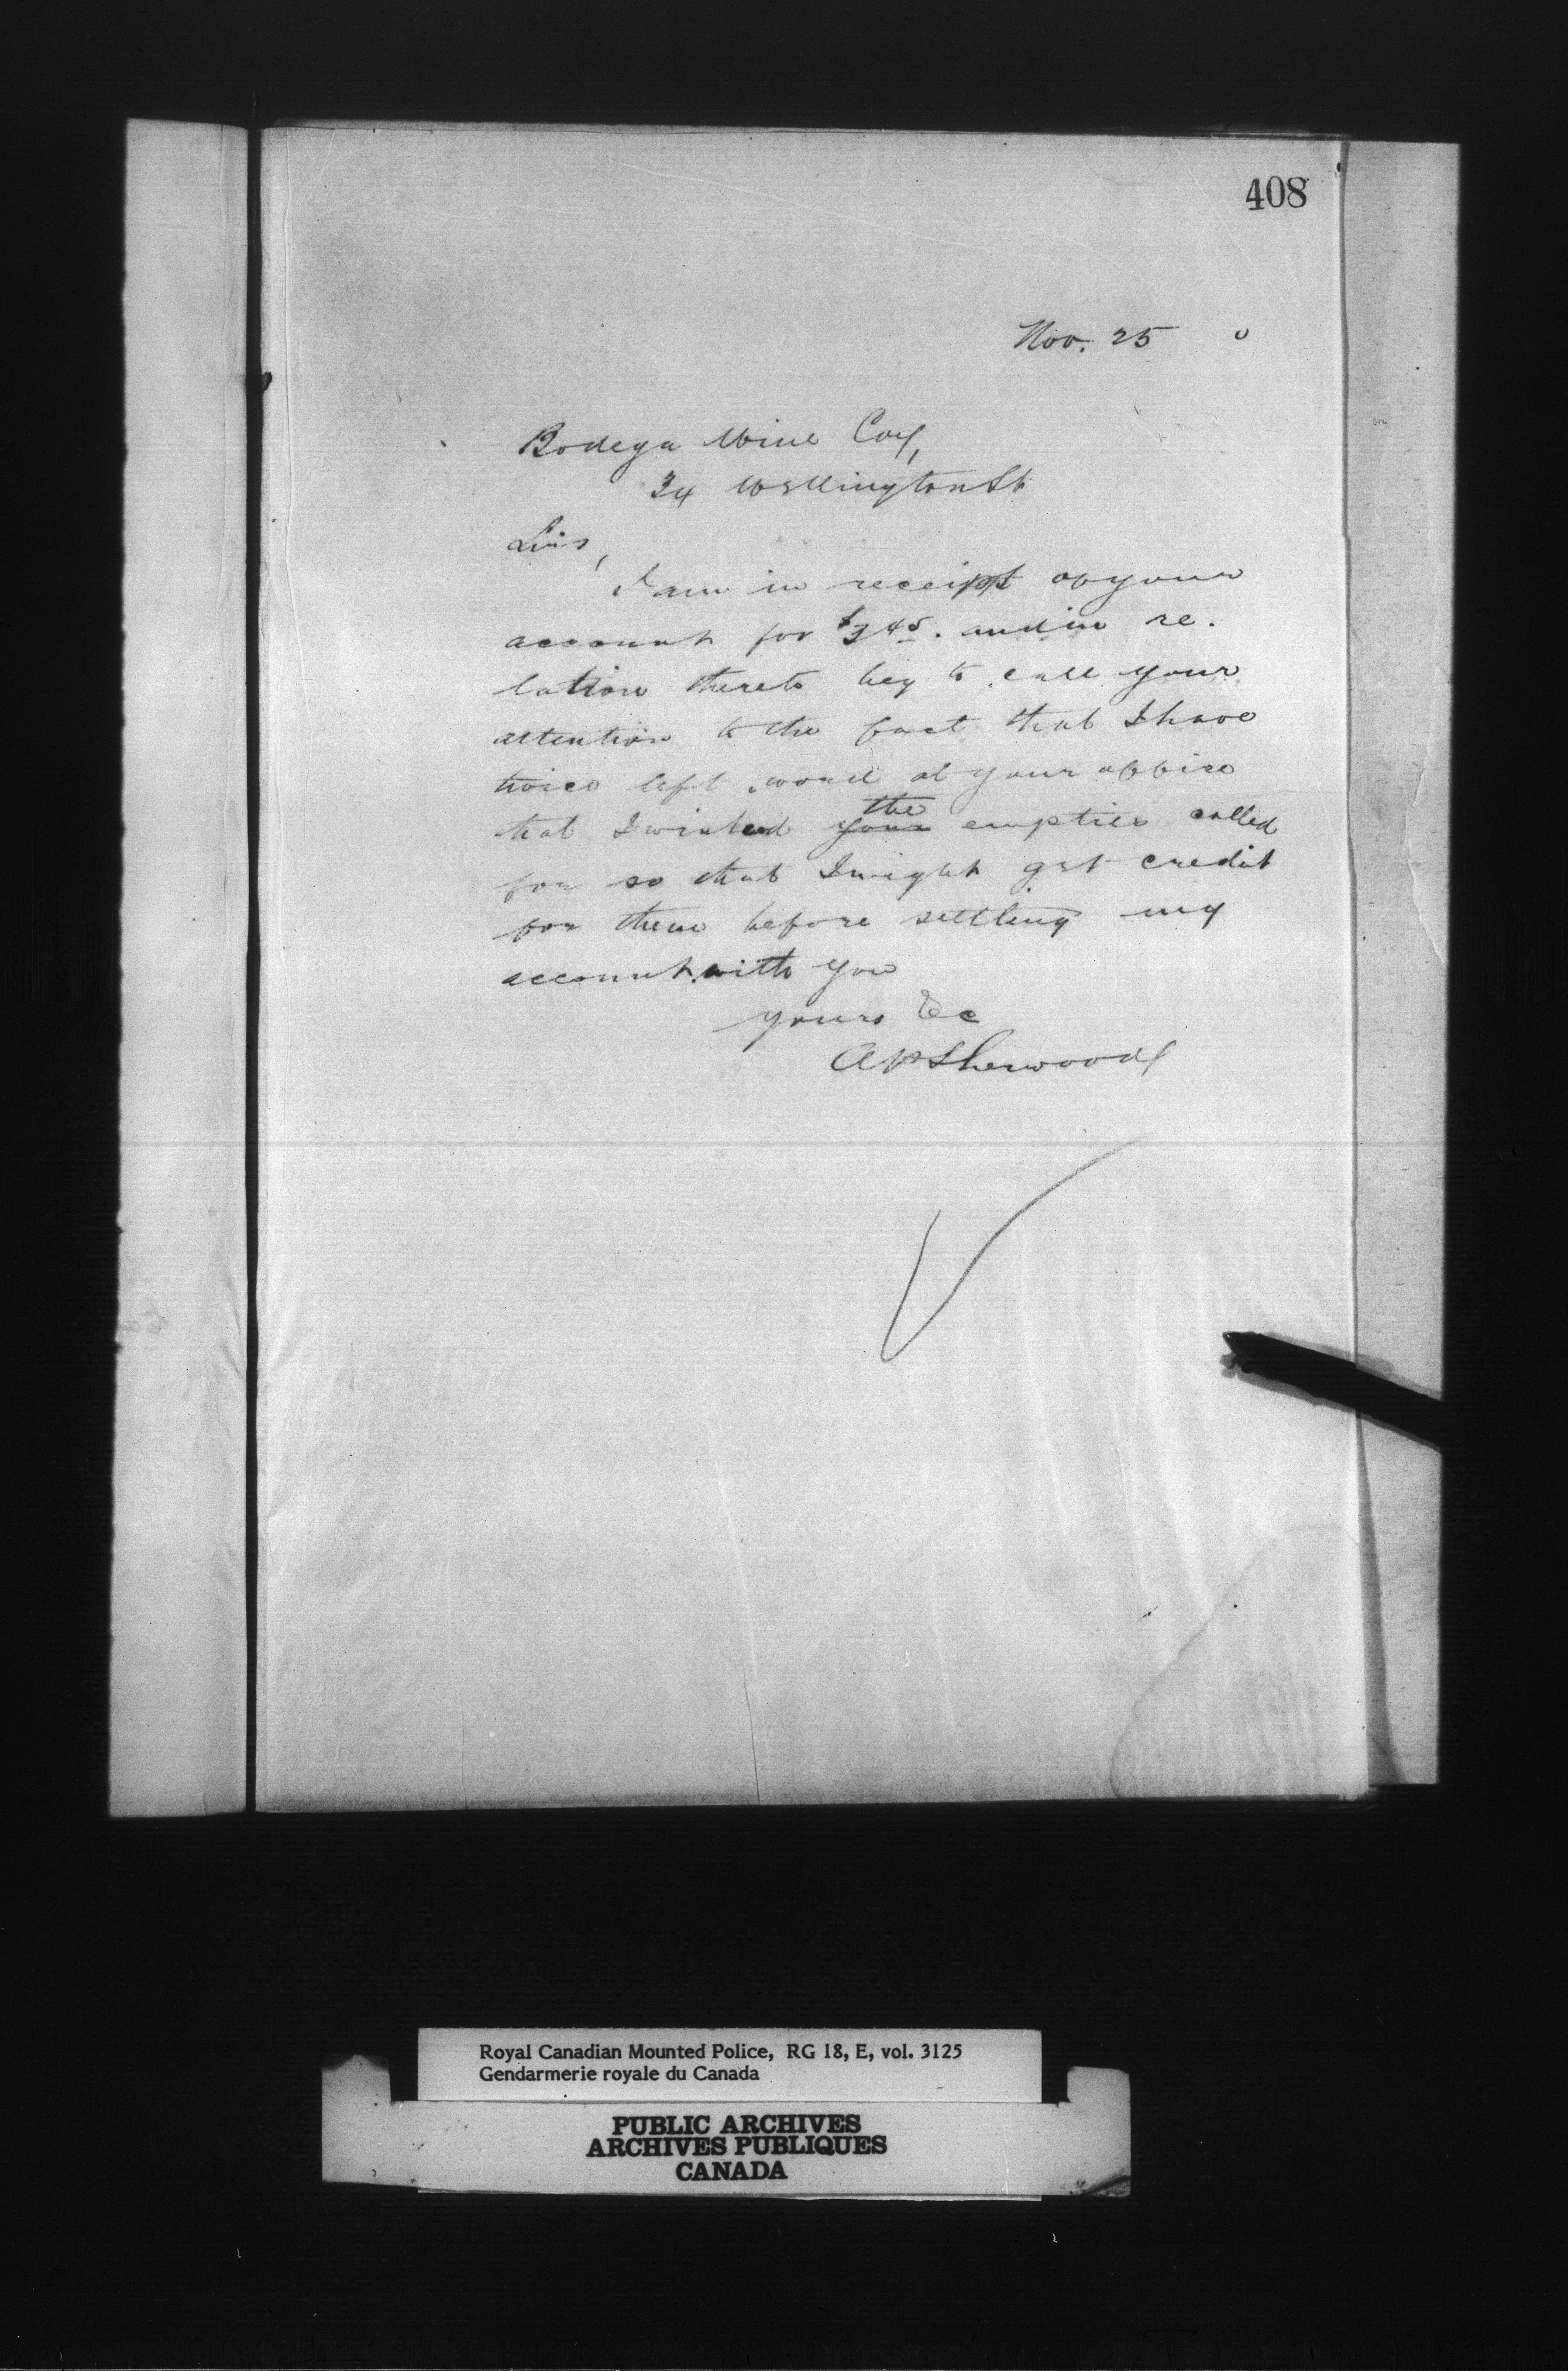 408
Nov. 25 0
Bodega Wine Coy,
34 Wellington St
Sirs,
I am in receipt of your
account for $3 45. and in re-
lation thereto beg to call your
attention to the fact that I have
twice left word at your office
the
that I wished your empties called
for so that I might get credit
for them before settling my
account with you
Yours &c
A P Sherwood
Royal Canadian Mounted Police, RG 18, E, vol. 3125
Gendarmerie royale du Canada
PUBLIC ARCHIVES
ARCHIVES PUBLIQUES
CANADA